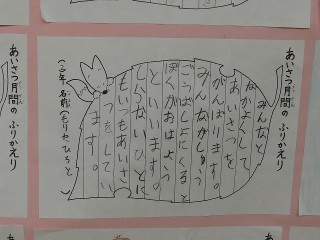 あいさつ月間の ふりかえり
みんなと
なかよくして
あいさつを
がんばります。
みんながしょう
ごうばしょにくると
ぼくがおはよう
といいます。
しらないひとに
もいつもあいさ
つをしてい
ます。
(二年 名前(もりた ひろと)